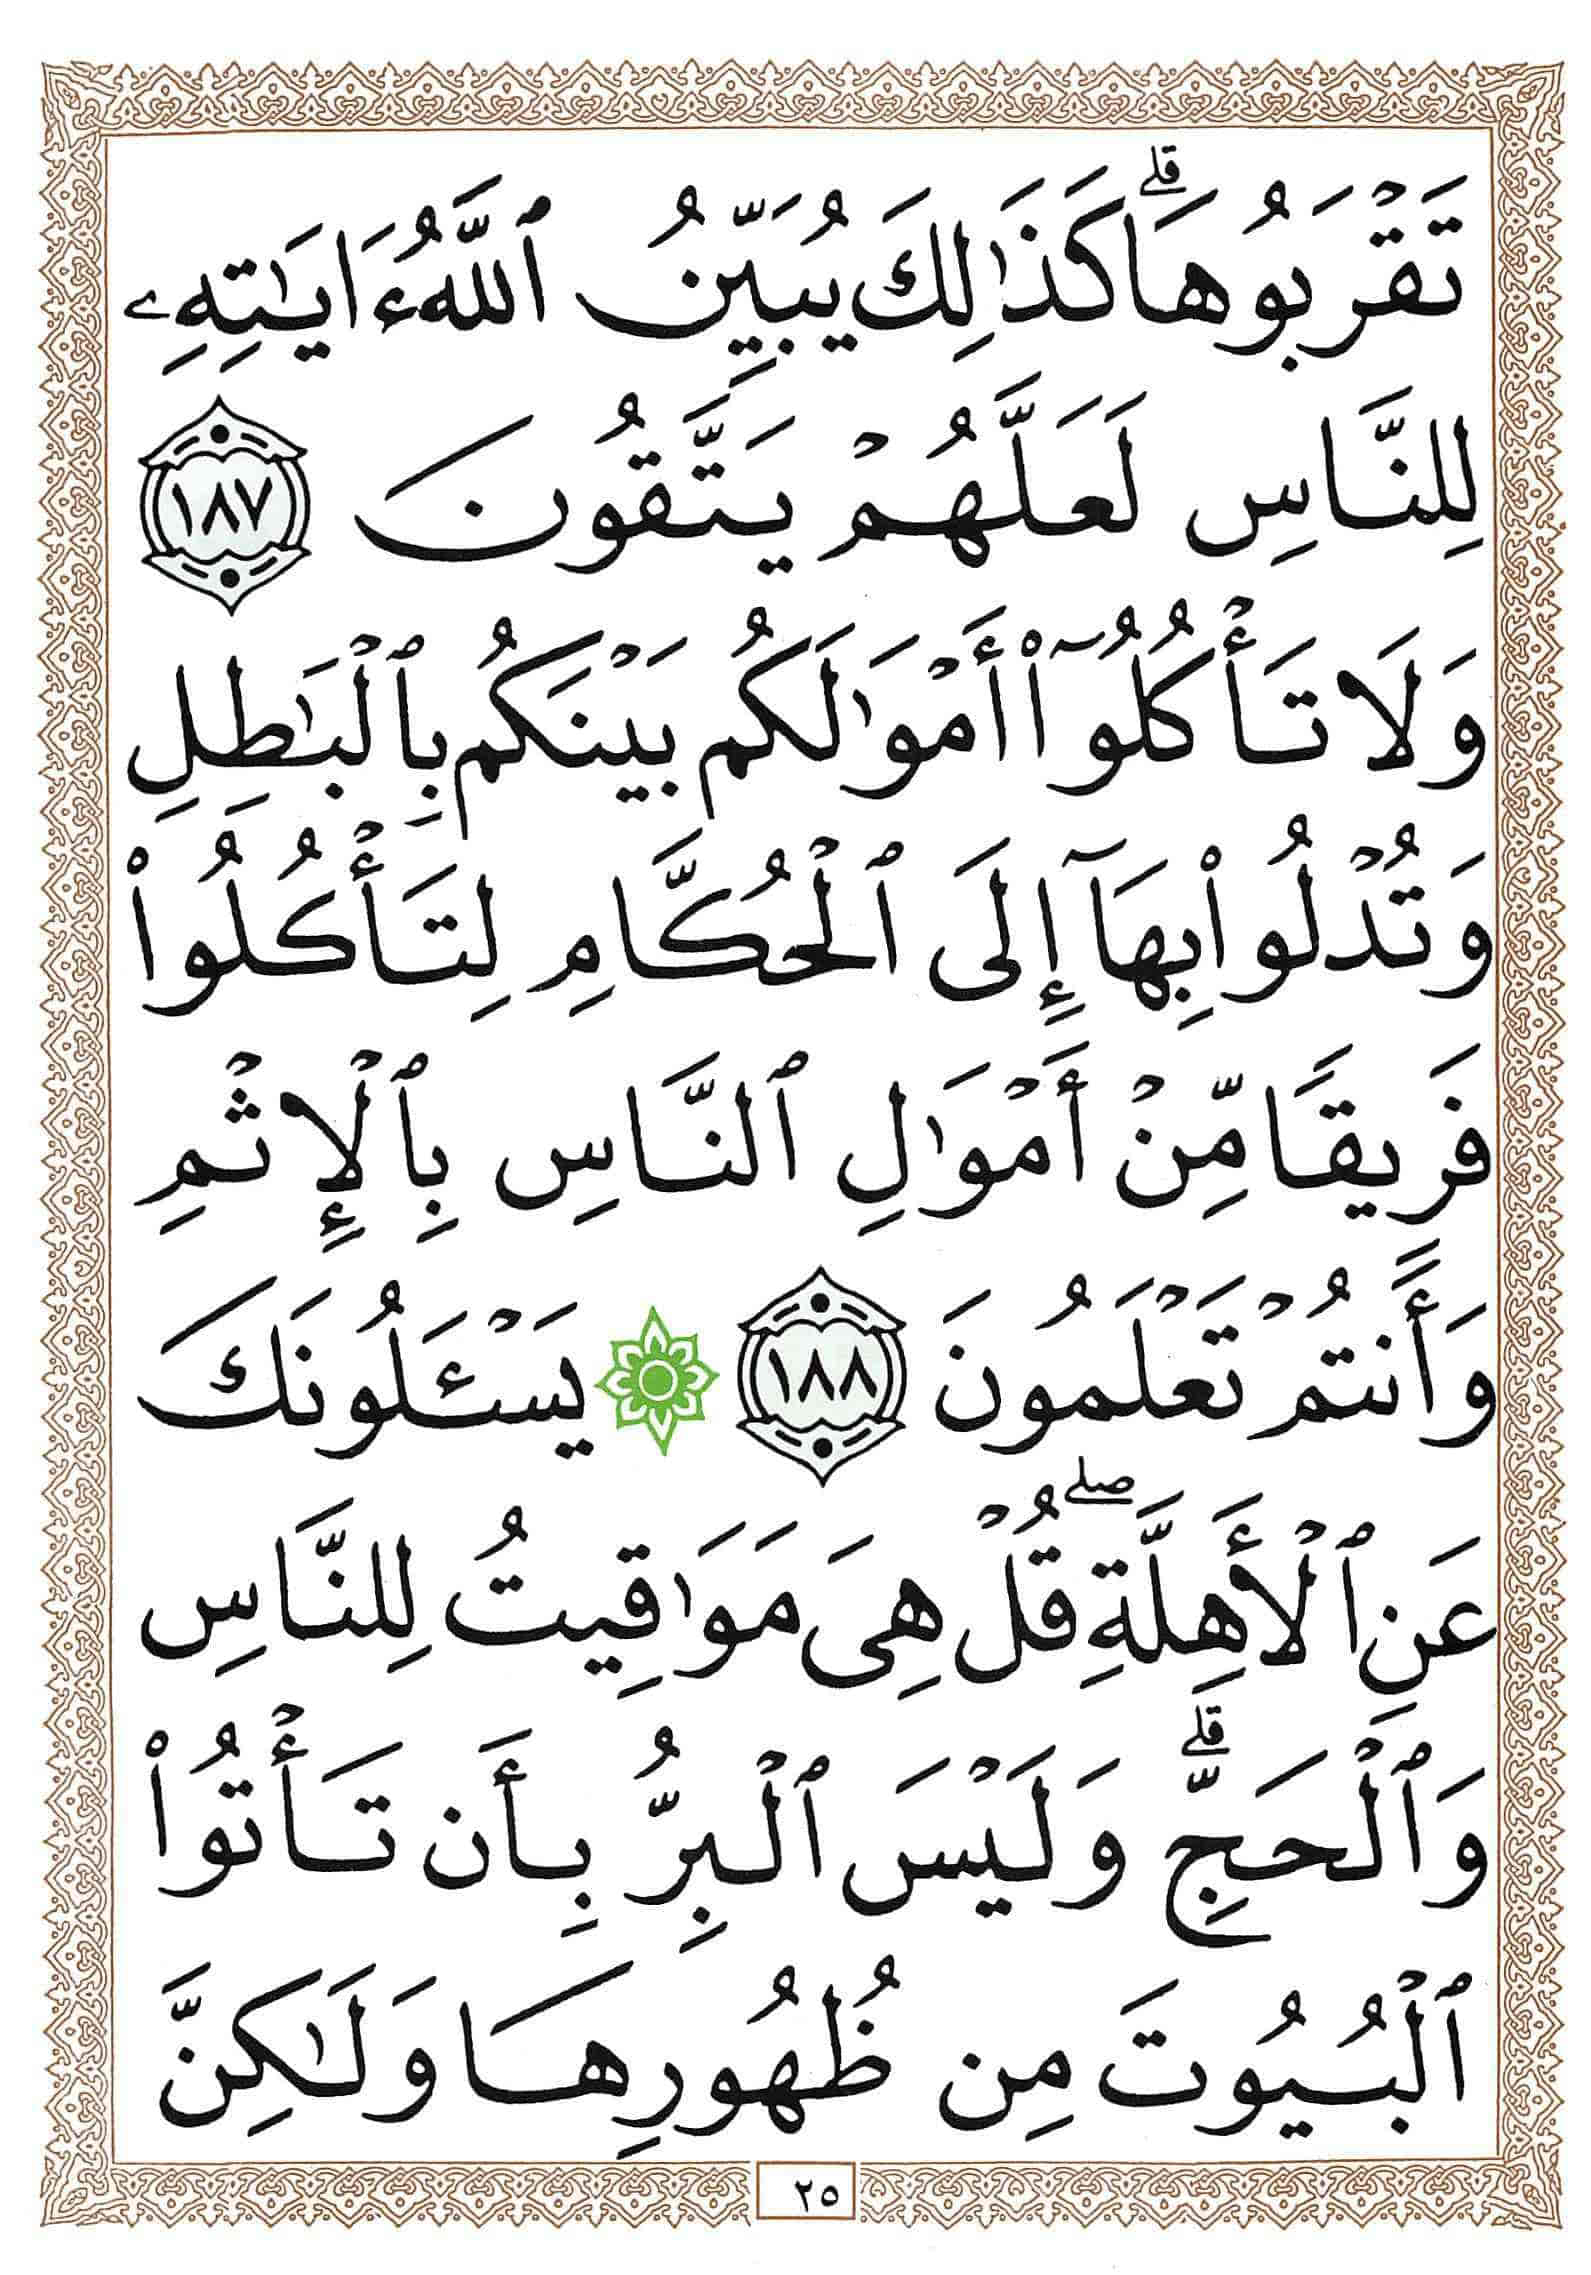 تَقْرَبُوهَا ۗ كَذَٰلِكَ يُبَيِّنُ ٱللَّهُ ءَايَـٰتِهِۦ
لِلنَّاسِ لَعَلَّهُمْ يَتَّقُونَ ١٨٧
وَلَا تَأْكُلُوٓا۟ أَمْوَٰلَكُم بَيْنَكُم بِٱلْبَـٰطِلِ
وَتُدْلُوا۟ بِهَآ إِلَى ٱلْحُكَّامِ لِتَأْكُلُوا۟
فَرِيقًا مِّنْ أَمْوَٰلِ ٱلنَّاسِ بِٱلْإِثْمِ
وَأَنتُمْ تَعْلَمُونَ ١٨٨ يَسْـَٔلُونَكَ
عَنِ ٱلْأَهِلَّةِ ۖ قُلْ هِىَ مَوَٰقِيتُ لِلنَّاسِ
وَٱلْحَجِّ ۗ وَلَيْسَ ٱلْبِرُّ بِأَن تَأْتُوا۟
ٱلْبُيُوتَ مِن ظُهُورِهَا وَلَـٰكِنَّ
٢٥